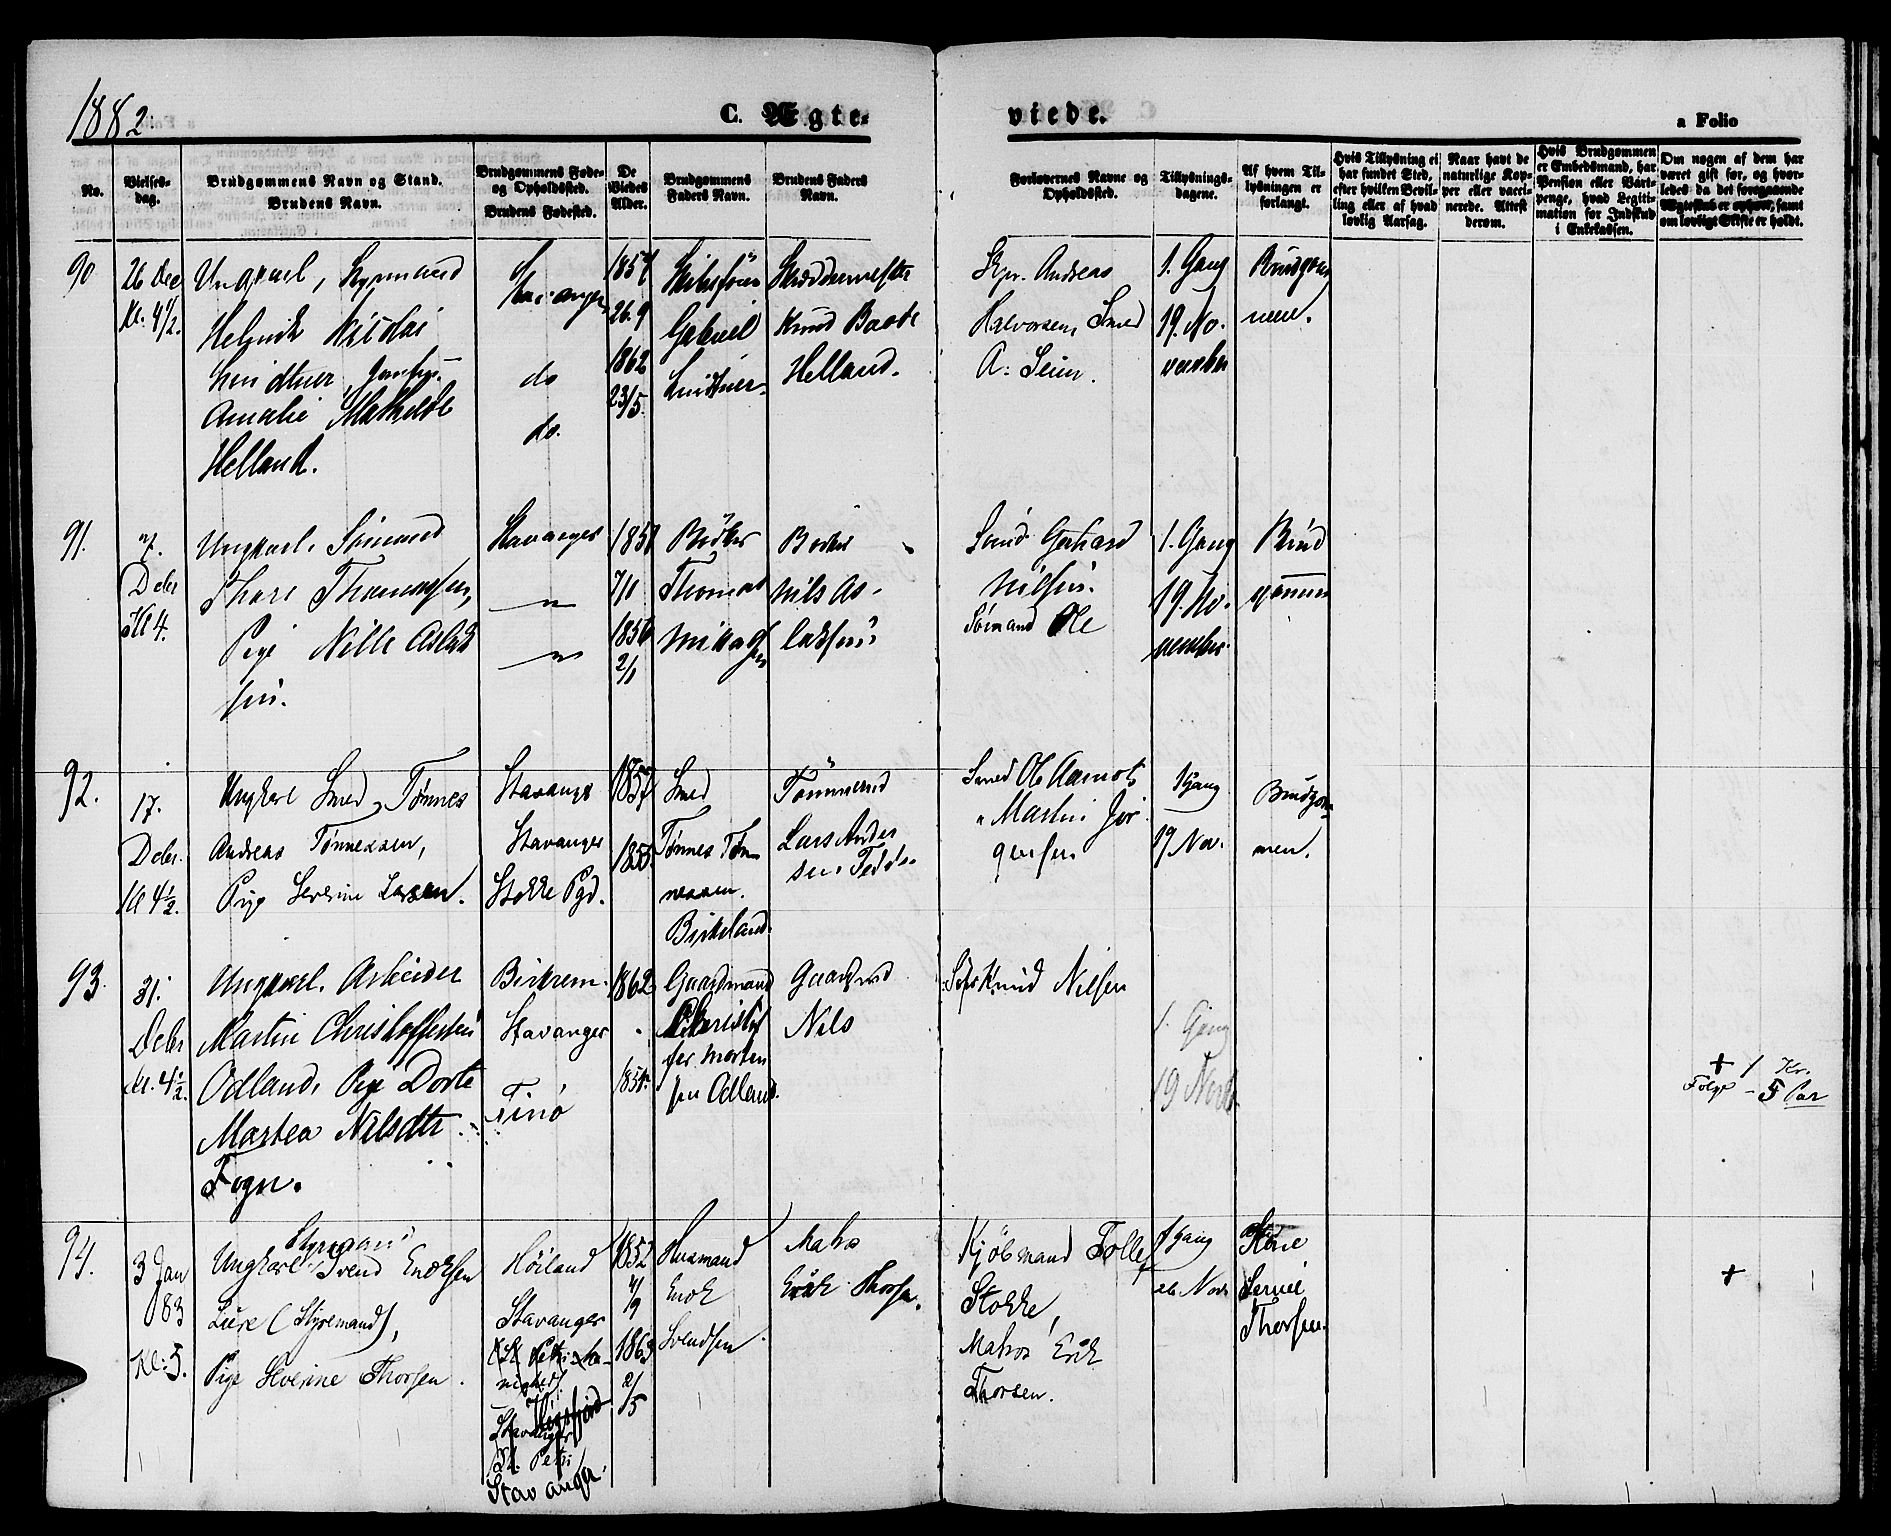 1882.
C. Ægte-
viede.
a Folio
No.
Vielses-
dag.
Brudgommens Navn og Stand.
Brudens Navn.
Brudgommens Føde-
og Opholdssted.
Brudens Fødested.
De
Viedes
Alder.
Brudgommens
Faders Navn.
Brudens Faders
Navn.
Forlovernes Navne og
Opholdssted.
Tillysnings-
dagene.
Af hvem Til-
lysningen er
forlangt.
Hvis Tillysning ei
har fundet Sted,
efter hvilken Bevil-
ling eller af hvad
lovlig Aarsag.
Naar havt de
naturlige Kop-
per eller vacci-
nerede. Attest
derom.
Hvis Brudgommen
er Embedsmand, har
Pension eller Vart-
penge, hvad Legiti-
mation for Indskud
i Enkekassen.
Om nogen af dem har
været gift før, og hvor-
ledes da det foregaaende
Ægteskab er ophævt, samt
om lovligt Skifte er holdt.
90
26 Dec
Kl. 4 1/2.
Ungkarl,
Helmik Nicolai
Lindtner, Jomfru
Amalie Mathilde
Helland.
Stavanger
do
do.
1857
26.9
1862
23/5.
Gabriel
Lindtner
Skræddermester
Knud Baade
Helland.
Skpr. Andreas
Halvorsen, Smed
A. Seim.
1. Gang
19. No-
vember
Brudgom
men.
91.
7.
Decbr
Kl 4.
Ungkarl. Sømand
Thore Thomassen,
Pige Nille Aslak
sen.
Stavanger
"
"
1857
7/1
1856
2/1
Bødker
Thomas
Bødker
Nils As-
laksen
Gerhard
Nilsen.
Sømand Ole
1. Gang
19. No-
vember
Brud
gommen
92.
17.
Decbr.
Kl 4 1/2.
Ungkarl Smed, Tønnes
Andreas Tønnessen,
Pige Severine Larsen.
Stavanger
Stavanger
Stokke Pgd.
1857
1855
Smed
Tønnes Tøn
nessen.
Birkeland.
Tømmermd
Lars Ander
sen
Smed Ole Aamodt
" Martin Jør
gensen
1 Gang
19 Nov.
Brudgom
men.
93.
31.
Decbr
Kl. 4 1/2.
Ungkarl. Arbeider
Martin Christoffersen
Odland, Pige Dorte
Martea Nilsdtr
Fogn.
Birkrem.
Stavanger
Finø
1862
1854.
Gaardmand
Christof
fer Morten
sen Odland.
Gaardmd
Nils
Knud Nilsen
1. Gang
19 Novb.
+ 1 Kr.
Følge - 5 Par
94.
3 Jan
83
Kl: 5.
Styrmand
Ungkarl Svend Enoksen
Lure (Styremand),
Pige Severine Thorsen.
Høiland
Stavanger
Høgsfjord
Stavanger
St. Petri
Stavanger.
1852
4/9
1863
2/5
Husmand
Enok
Svendsen.
Matros
Erik Thorsen.
Kjøbmand Tollef
Stokke,
Matros Erik
Thorsen.
1 Gang
Nov
Thorsen.
+